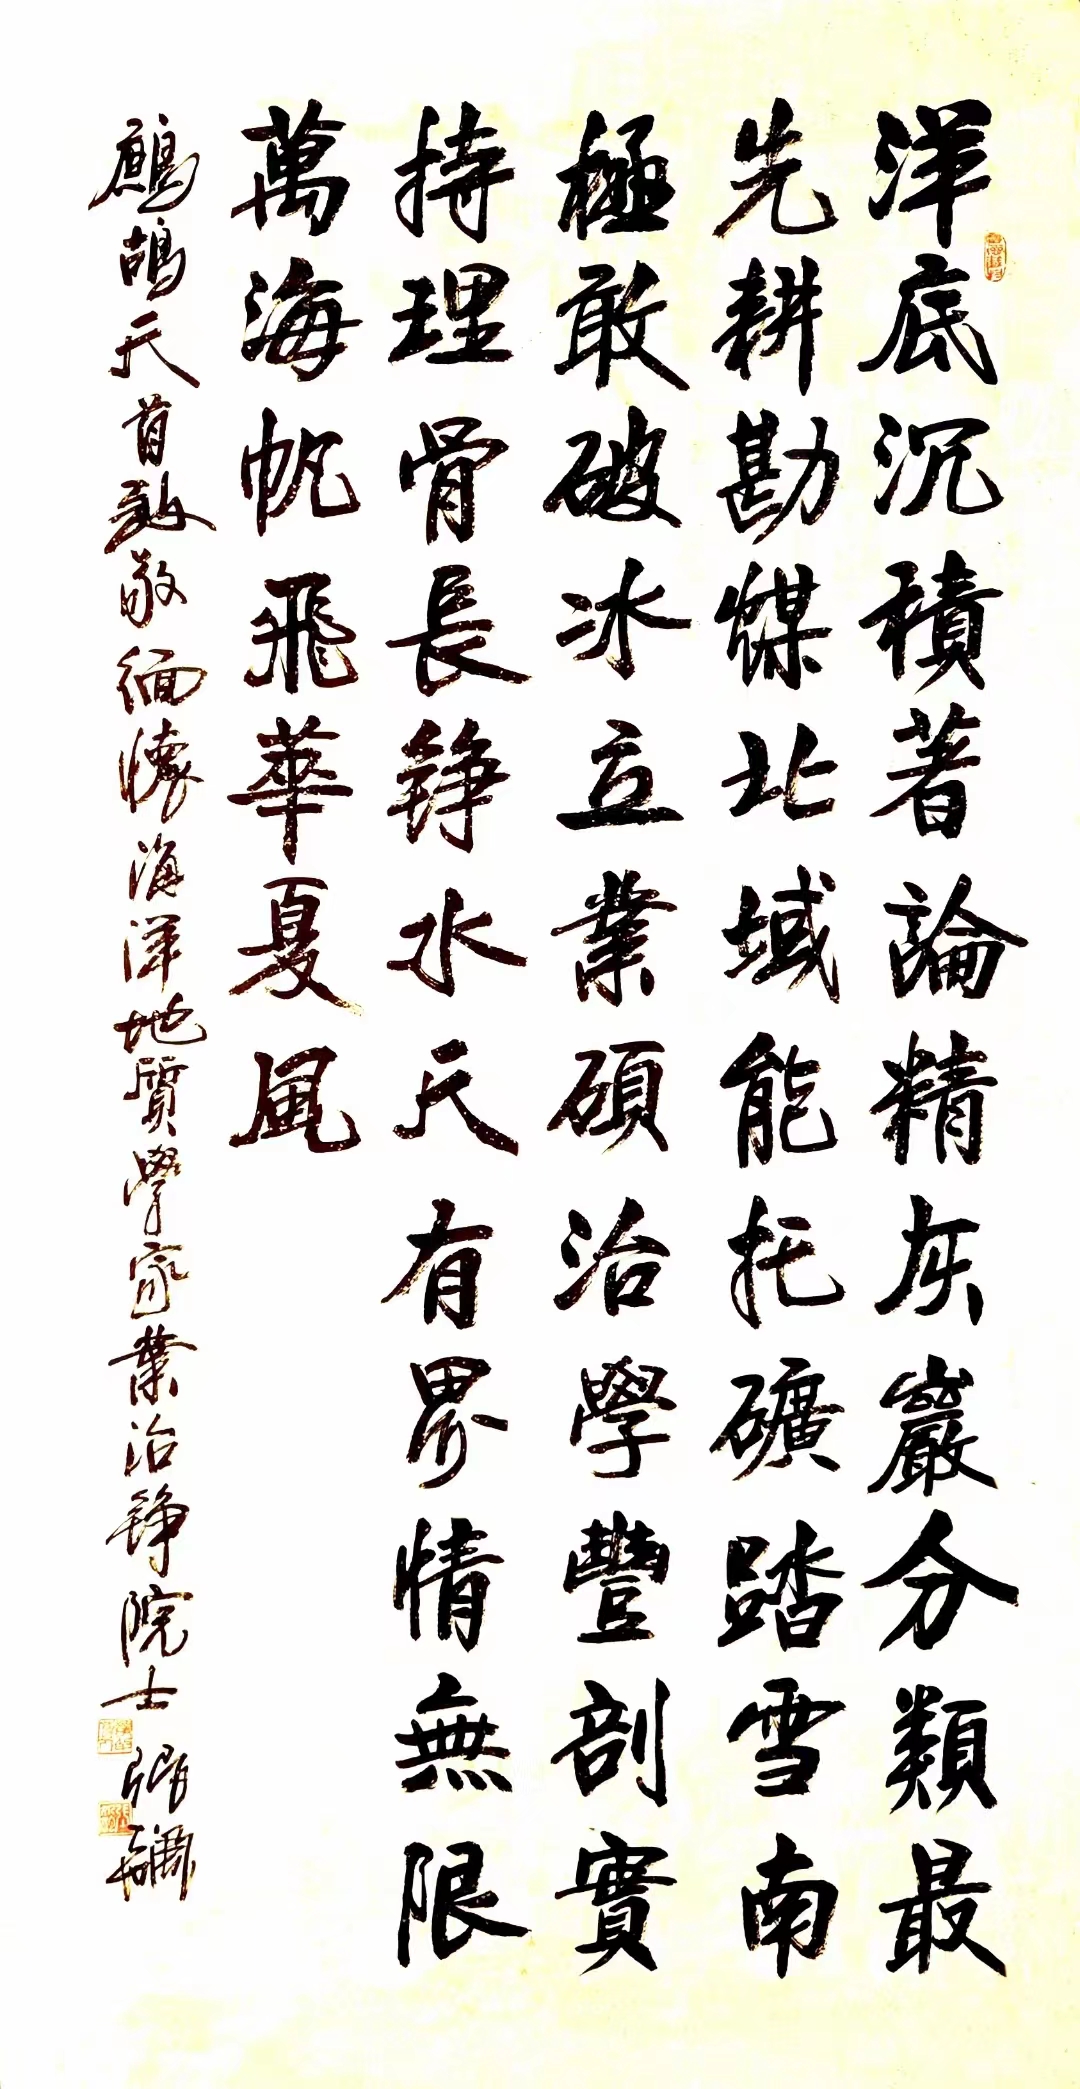 洋底沉積著論精灰巖分類最
先耕勘煤北域能托礦踏雪南
極敢破冰立業碩治學豐剖實
持理骨長錚水天有界情無限
萬海帆飛華夏風
鷓鴣天首致敬緬懷海洋地質學家業治錚院士